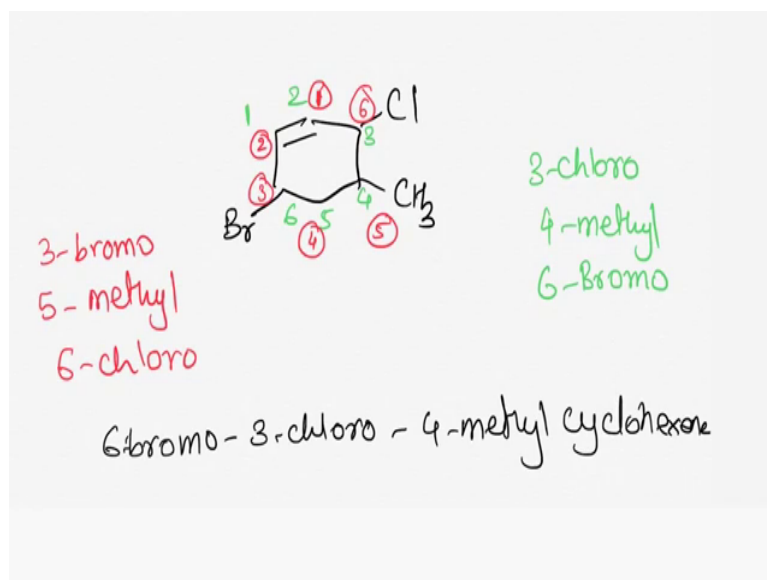 2 ① ⑥ Cl
1
② 3
③ 4 CH3
Br 6 5 ⑤
④
3-bromo
5-methyl
6-chloro
3-chloro
4-methyl
6-Bromo
6-bromo-3-chloro-4-methyl cyclohexene